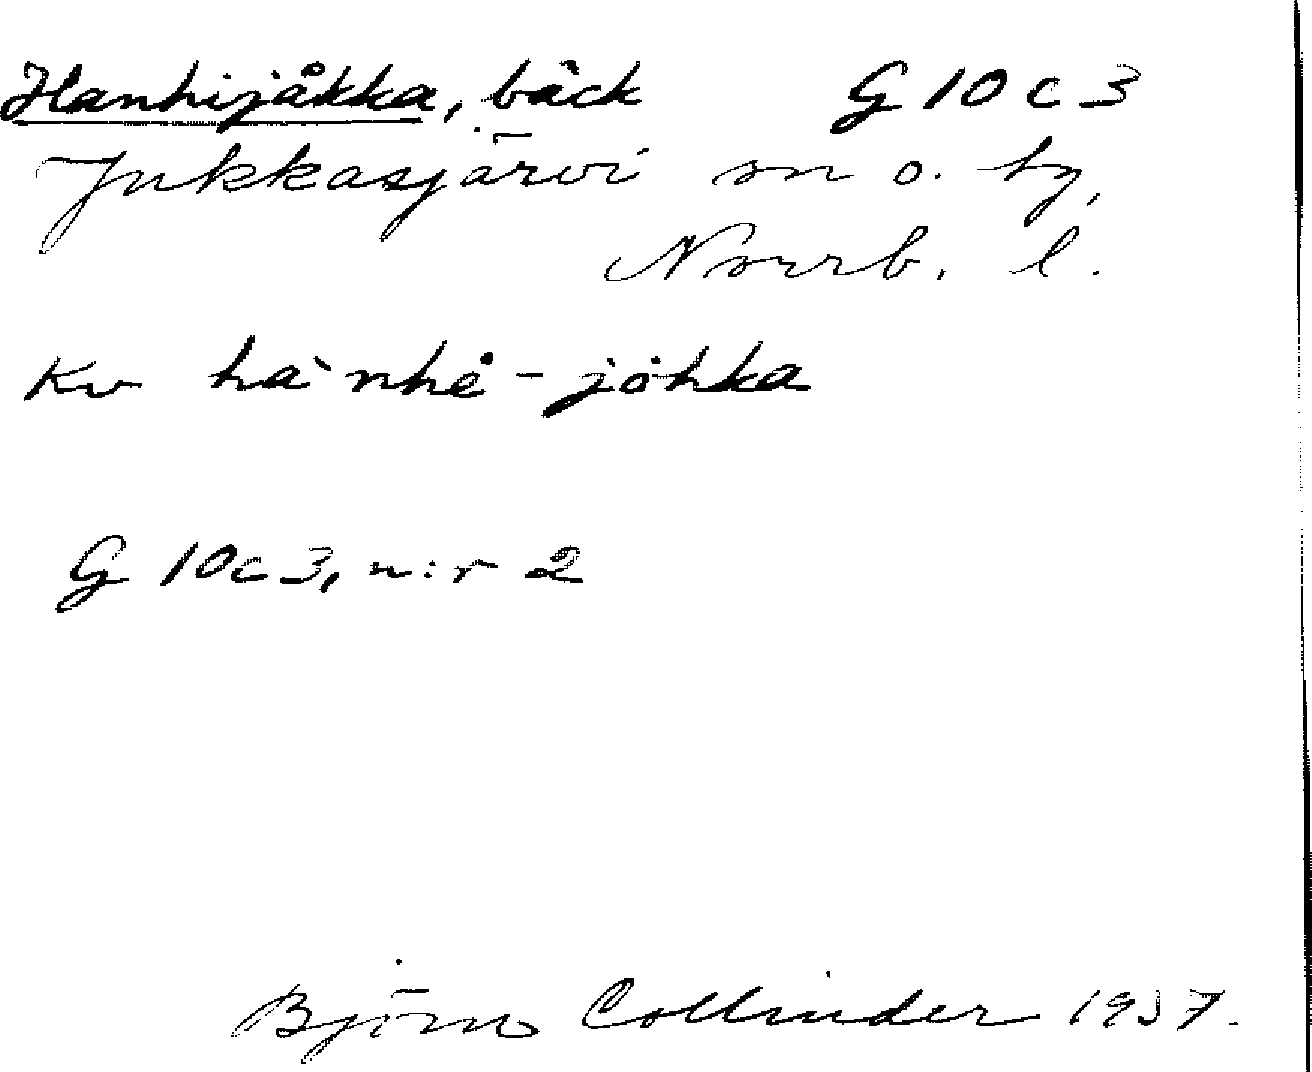 Hanhijåkka, bäck G 10 c 3
Jukkasjärvi sn o. by,
Norrb. l.
Kv hà nhe̊ - jȯhka
G 10 c 3, n:r 2
Björn Collinder 1937.